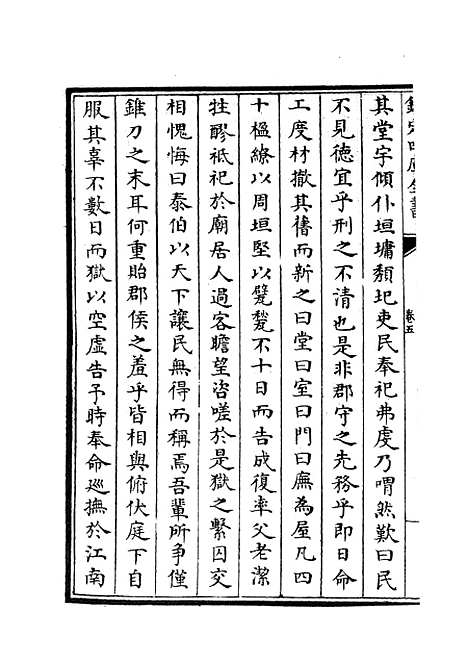 欽定四庫全書
卷五
其堂宇傾仆垣墉頽圮吏民奉祀弗虔乃喟然歎曰民
不見德宜乎刑之不清也是非郡守之先務乎即日命
工度材撤其舊而新之曰堂曰室曰門曰廡為屋凡四
十楹繚以周垣堅以甓甃不十日而告成復率父老潔
牲醪祗祀於廟居人過客瞻望咨嗟於是獄之繫囚交
相愧悔曰泰伯以天下讓民無得而稱焉吾輩所争僅
錐刀之末耳何重貽郡侯之羞乎皆相與俯伏庭下自
服其辜不數日而獄以空虛告予時奉命巡撫於江南